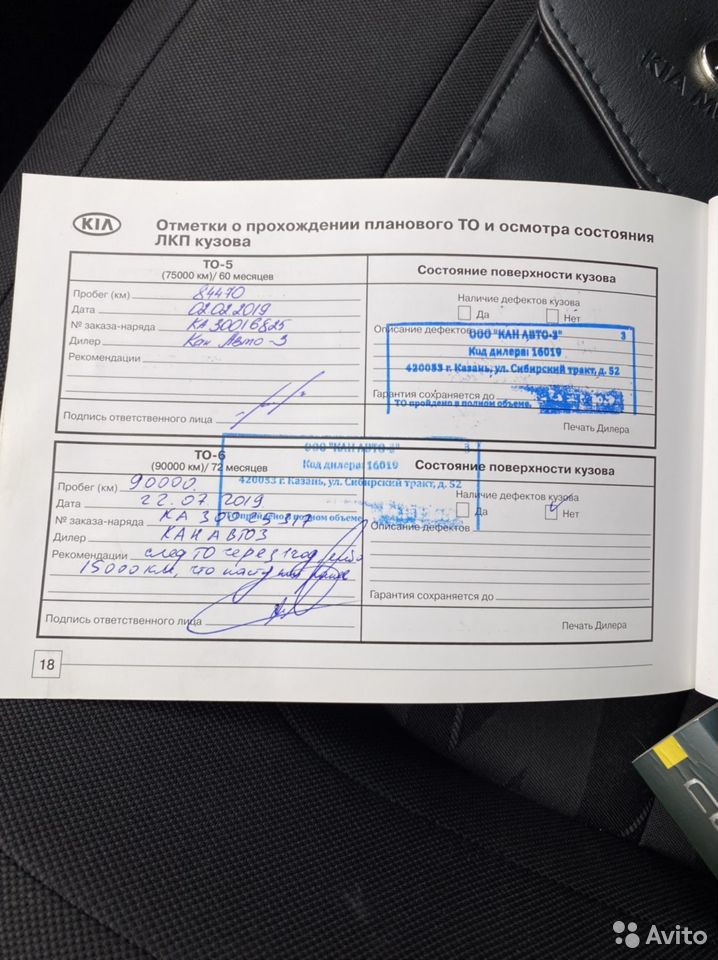 KIA M
KIA
Отметки о прохождении планового ТО и осмотра состояния
ЛКП кузова
ТО-5
(75000 км)/ 60 месяцев
Пробег (км) 84470
Дата 02.02.2019
№ заказа-наряда КА30016825
Дилер Кан Авто-3
Рекомендации
Подпись ответственного лица
Состояние поверхности кузова
Наличие дефектов кузова
Да Нет
Описание дефектов
ООО "КАН АВТО-3" 3
Код дилера: 16019
420033 г. Казань, ул. Сибирский тракт, д. 52
Гарантия сохраняется до
ТО пройдено в полном объеме.
Печать Дилера
ТО-6
(90000 км)/ 72 месяцев
Пробег (км) 90000
Дата 22.07 2019
№ заказа-наряда
Дилер КАН АВТО3
Рекомендации след ТО через 1 год либо
15000 км, что наступит ранее
Подпись ответственного лица
ООО "КАН АВТО-3" 3
Код дилера: 16019
420033 г. Казань, ул. Сибирский тракт, д. 52
ТО пройдено в полном объеме
Состояние поверхности кузова
Наличие дефектов кузова
Да Нет
Описание дефектов
Гарантия сохраняется до
Печать Дилера
18
Avito